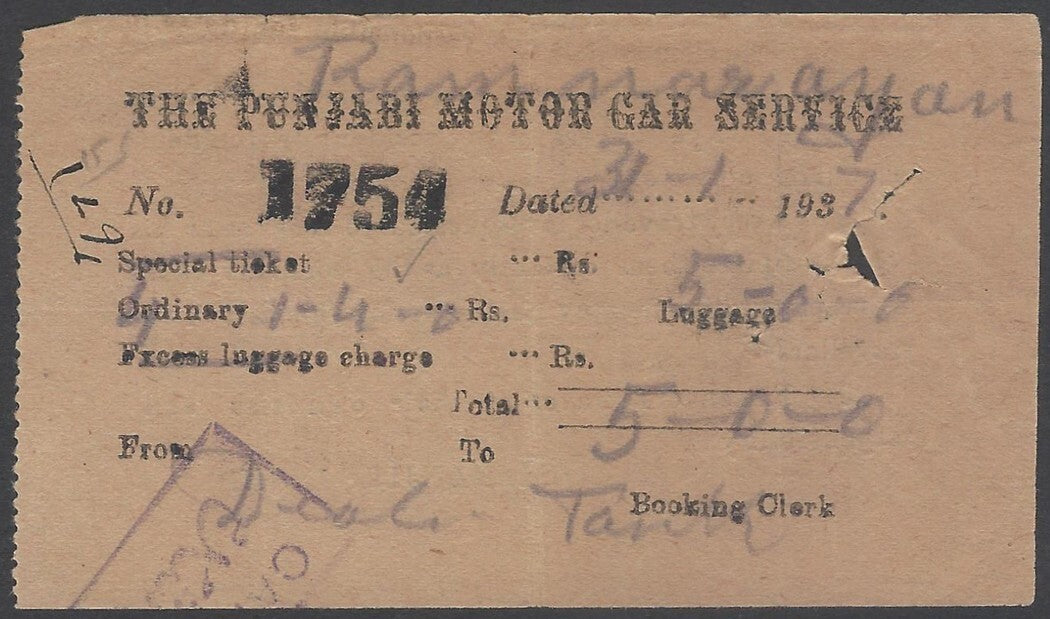 Ramnarayan
THE PUNJABI MOTOR CAR SERVICE
No. 1754 Dated 31-1 1937.
Special ticket ... Rs.
Ordinary 1-4-0 ... Rs. Luggage 5-0-0
Excess luggage charge ... Rs.
Total... 5-0-0
From To
Booking Clerk